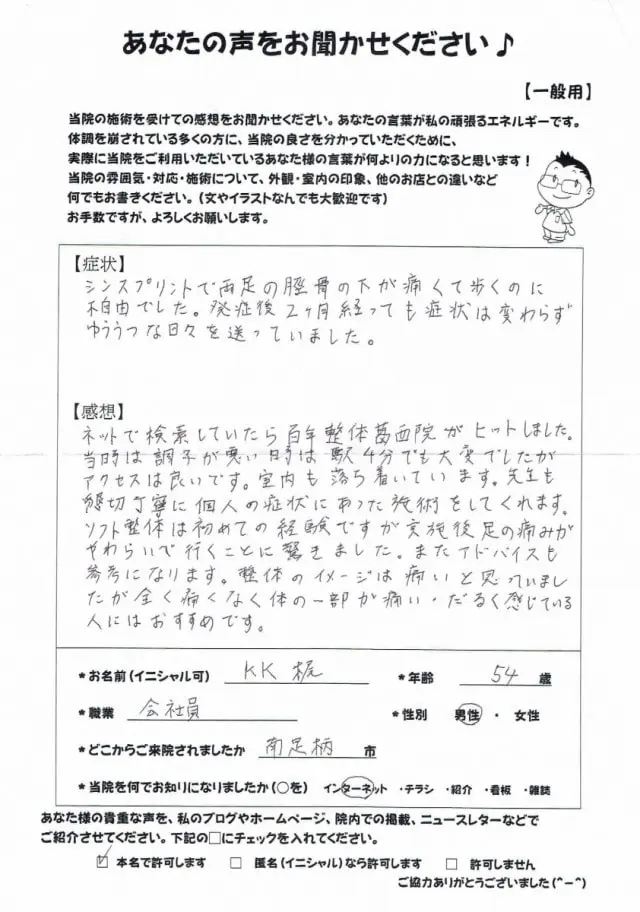 あなたの声をお聞かせください♪
【一般用】
当院の施術を受けての感想をお聞かせください。あなたの言葉が私の頑張るエネルギーです。
体調を崩されている多くの方に、当院の良さを分かっていただくために、
実際に当院をご利用いただいているあなた様の言葉が何よりの力になると思います!
当院の雰囲気・対応・施術について、外観・室内の印象、他のお店との違いなど
何でもお書きください。(文やイラストなんでも大歓迎です)
お手数ですが、よろしくお願いします。
【症状】
シンスプリントで両足の脛骨の下が痛くて歩くのに
不自由でした。発症後2ヶ月経っても症状は変わらず
ゆううつな日々を送っていました。
【感想】
ネットで検索していたら百年整体葛西院がヒットしました。
当時は調子が悪い時は駅4分でも大変でしたが
アクセスは良いです。室内も落ち着いています。先生も
懇切丁寧に個人の症状にあった施術をしてくれます。
ソフト整体は初めての経験ですが実施後足の痛みが
やわらいで行くことに驚きました。またアドバイスも
参考になります。整体のイメージは痛いと思っていまし
たが全く痛くなく体の一部が痛い・だるく感じている
人にはおすすめです。
*お名前(イニシャル可) KK 梶
*年齢 54 歳
*職業 会社員
*性別 男性 ・ 女性
*どこからご来院されましたか 南足柄 市
*当院を何でお知りになりましたか(○を) インターネット ・チラシ ・紹介 ・看板 ・雑誌
あなた様の貴重な声を、私のブログやホームページ、院内での掲載、ニュースレターなどで
ご紹介させてください。下記の□にチェックを入れてください。
☑ 本名で許可します □ 匿名(イニシャル)なら許可します □ 許可しません
ご協力ありがとうございました(^-^)